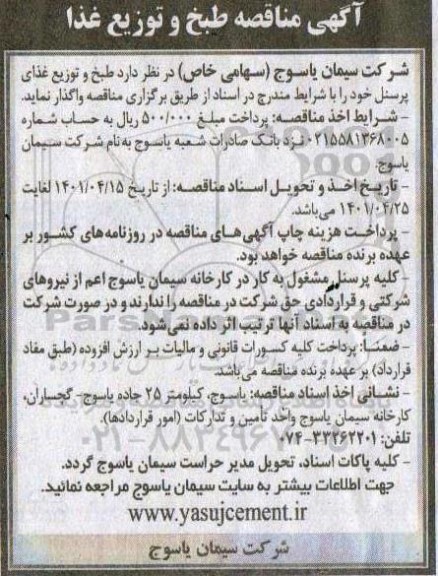 آگهی مناقصه طبخ و توزیع غذا
شرکت سیمان یاسوج (سهامی خاص) در نظر دارد طبخ و توزیع غذای
پرسنل خود را با شرایط مندرج در اسناد از طریق برگزاری مناقصه واگذار نماید.
- شرایط اخذ مناقصه: پرداخت مبلغ ۵۰۰/۰۰۰ ریال به حساب شماره
۰۲۱۵۵۸۱۳۶۸۰۰۵ نزد بانک صادرات شعبه یاسوج به نام شرکت سیمان
یاسوج.
- تاریخ اخذ و تحویل اسناد مناقصه: از تاریخ ۱۴۰۱/۰۴/۱۵ لغایت
۱۴۰۱/۰۴/۲۵ می‌باشد.
- پرداخت هزینه چاپ آگهی‌های مناقصه در روزنامه‌های کشور بر
عهده برنده مناقصه خواهد بود.
- کلیه پرسنل مشغول به کار در کارخانه سیمان یاسوج اعم از نیروهای
شرکتی و قراردادی حق شرکت در مناقصه را ندارند و در صورت شرکت
در مناقصه به اسناد آنها ترتیب اثر داده نمی‌شود.
- ضمناً: پرداخت کلیه کسورات قانونی و مالیات بر ارزش افزوده (طبق مفاد
قرارداد) بر عهده برنده مناقصه می‌باشد.
- نشانی اخذ اسناد مناقصه: یاسوج، کیلومتر ۲۵ جاده یاسوج- گچساران،
کارخانه سیمان یاسوج واحد تأمین و تدارکات (امور قراردادها).
تلفن: ۳۳۲۶۲۲۰۱-۰۷۴
- کلیه پاکات اسناد، تحویل مدیر حراست سیمان یاسوج گردد.
جهت اطلاعات بیشتر به سایت سیمان یاسوج مراجعه نمائید.
www.yasujcement.ir
شرکت سیمان یاسوج